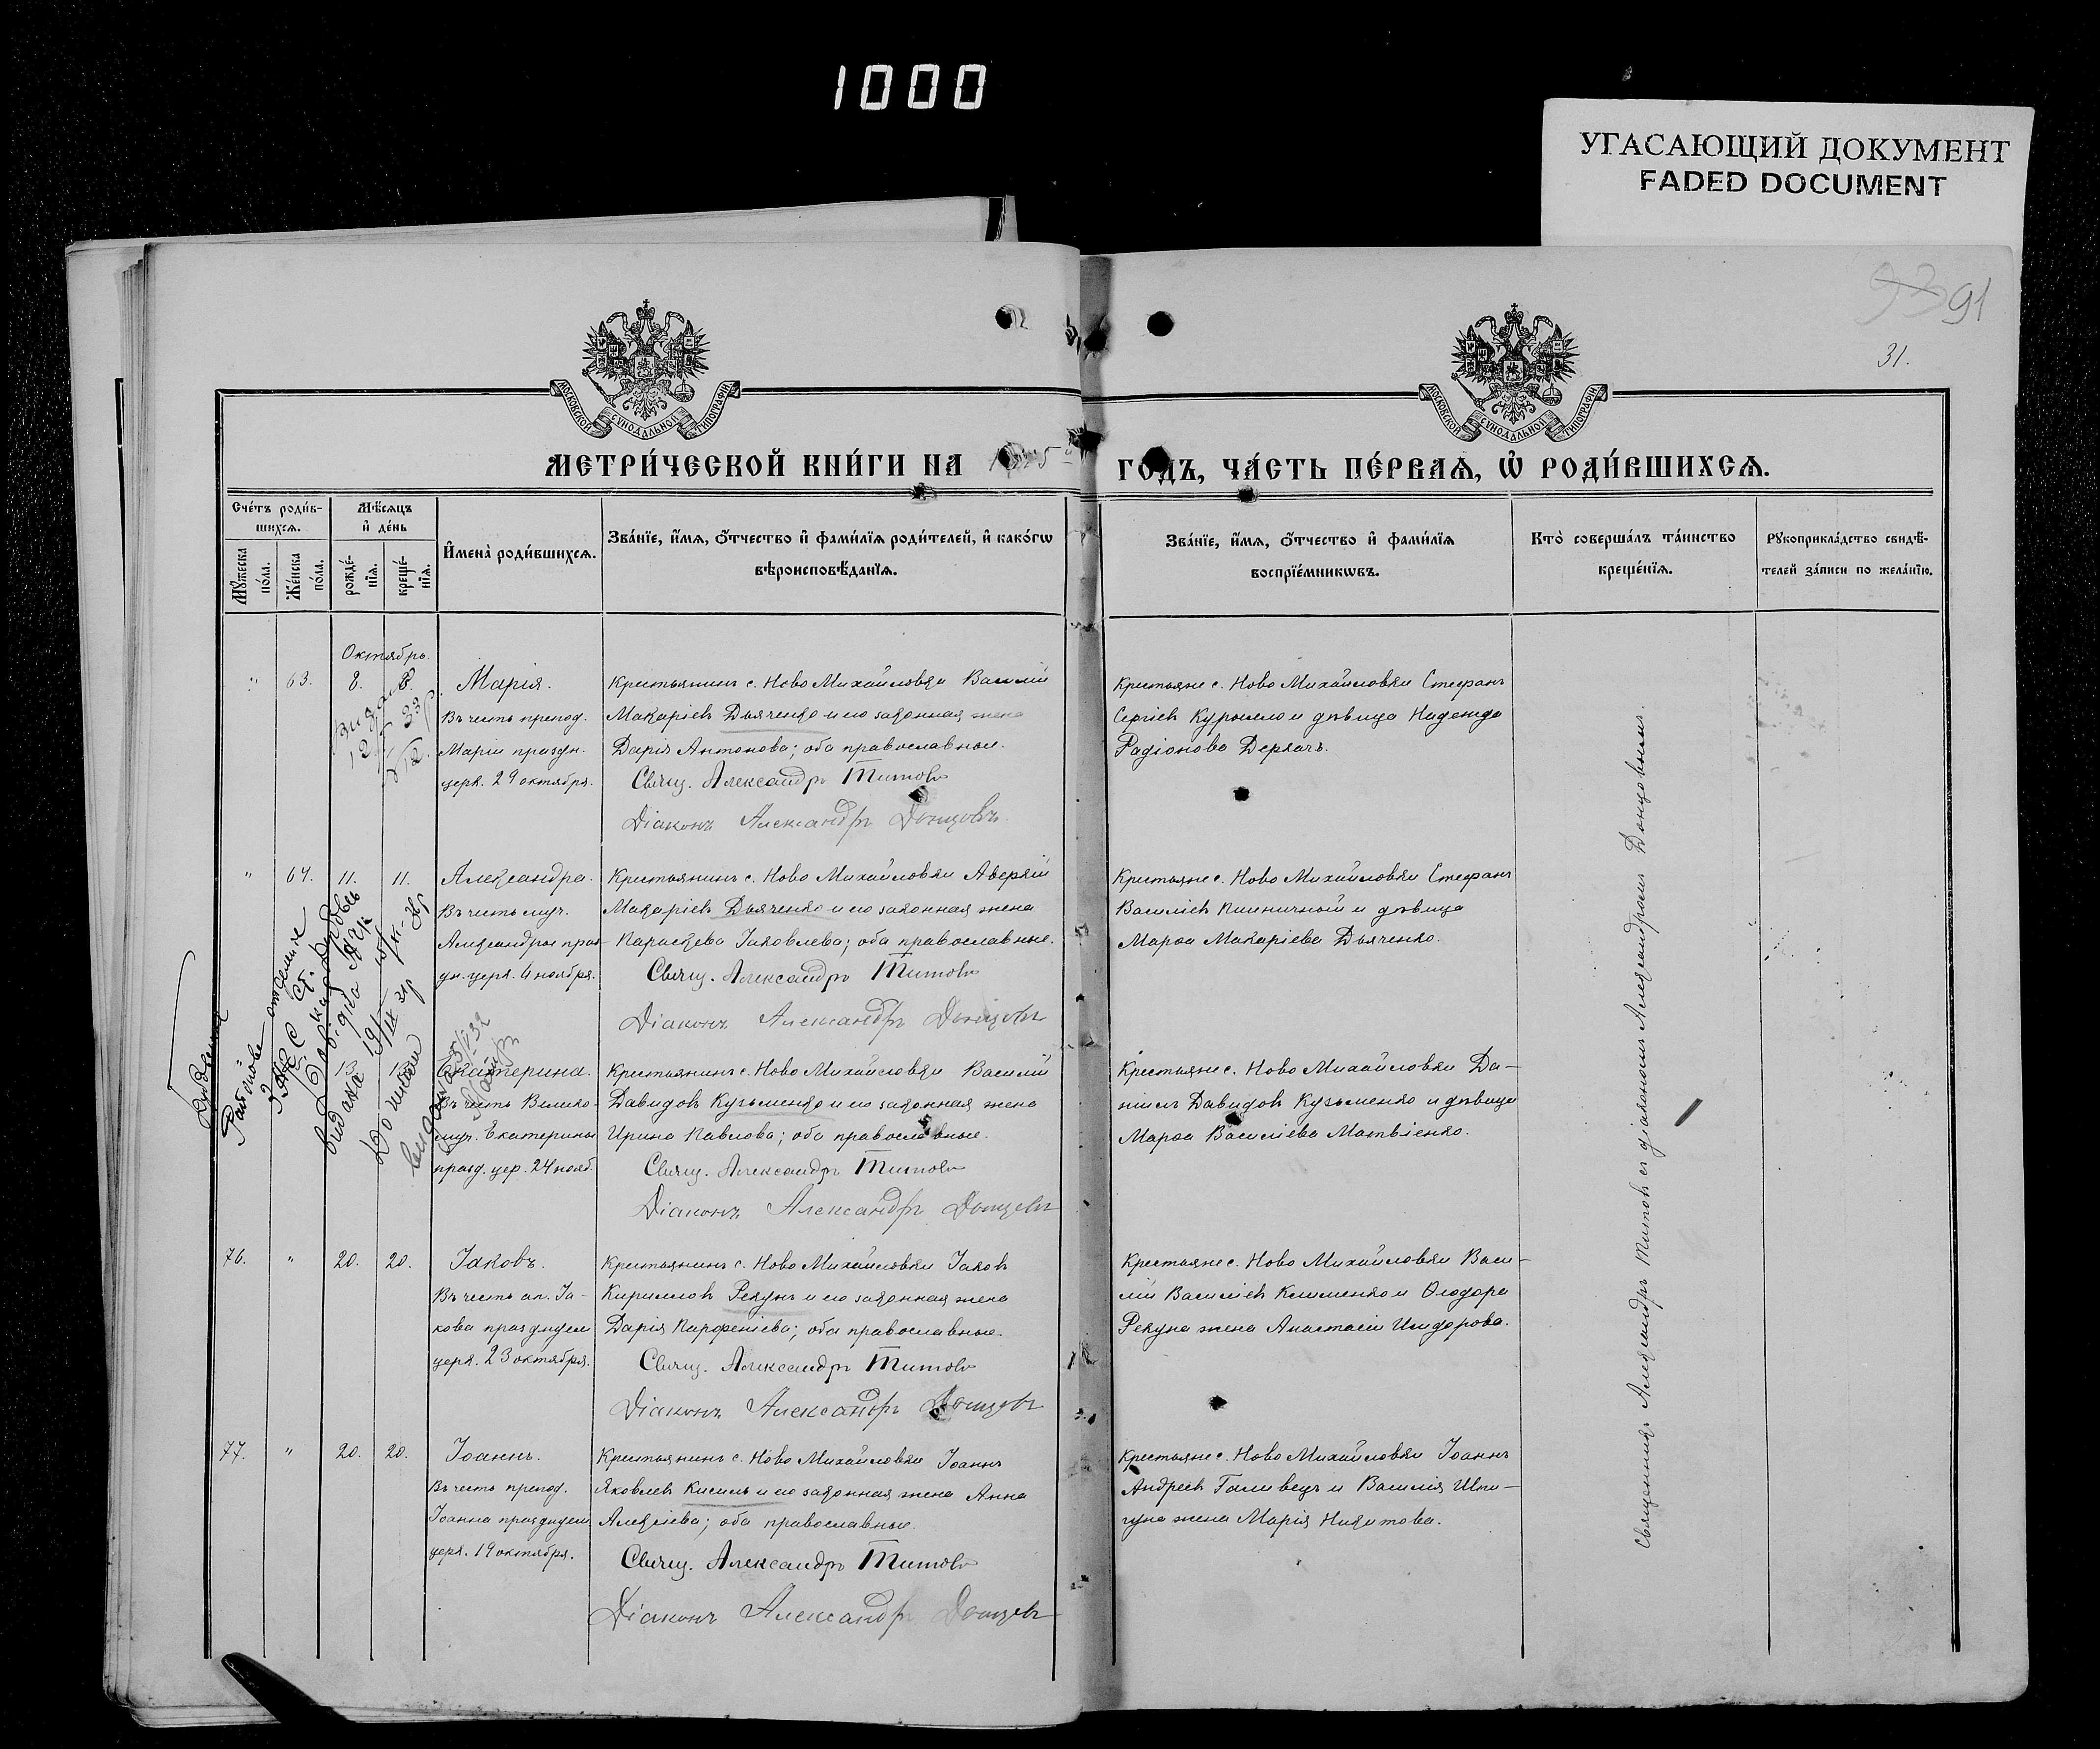 1000
УГАСАЮЩИЙ ДОКУМЕНТ
FADED DOCUMENT
93 91
31.
МОСКОВСКОЙ СѴНОДАЛЬНОЙ ТИПОГРАФІИ
МОСКОВСКОЙ СѴНОДАЛЬНОЙ ТИПОГРАФІИ
МЕТРИ́ЧЕСКОЙ КНИ́ГИ НА
ГОДЪ, ЧА́СТЬ ПЕ́РВАѦ, Ѽ РОДИ́ВШИХСѦ.
Сче́тъ роди́в-
шихсѧ.
Мѣ́сѧцъ
и҆ де́нь
Мꙋ́жеска по́ла.
Же́нска по́ла.
рожде́-нїѧ.
креще́-нїѧ.
И҆мена̀ роди́вшихсѧ.
Зва́нїе, и҆́мѧ, ѻ҆́тчество и҆ фами́лїѧ роди́телей, и҆ како́гѡ
вѣроисповѣ́данїѧ.
Зва́нїе, и҆́мѧ, ѻ҆́тчество и҆ фами́лїѧ
воспрїе́мникѡвъ.
Кто̀ соверша́лъ та́инство
креще́нїѧ.
Рꙋкоприкла́дство свидѣ́-
телей за́писи по жела́нїю.
Октябрь.
" 63. 8. 8. Марія.
Въ честь препод.
Маріи праздн.
церк. 29 октября.
Крестьянинъ с. Ново Михайловки Василій
Макаріевъ Дьяченко и его законная жена
Дарія Антонова; оба православные.
Свящ. Александръ Титовъ
Діаконъ Александръ Донцовъ
Крестьяне с. Ново Михайловки Стефанъ
Сергіевъ Курилло и дѣвица Надежда
Радіонова Деркачъ.
" 64. 11. 11. Александра.
Въ честь муч.
Александры праз-
дн. церк. 6 ноября.
Крестьянинъ с. Ново Михайловки Аверкій
Макаріевъ Дьяченко и его законная жена
Параскева Іаковлева; оба православные.
Свящ. Александръ Титовъ
Діаконъ Александръ Донцовъ
Крестьяне с. Ново Михайловки Стефанъ
Василіевъ Пшеничный и дѣвица
Марѳа Макаріева Дьяченко.
Екатерина.
Въ честь Велико-
муч. Екатерины
празд. цер. 24 нояб.
Крестьянинъ с. Ново Михайловки Василій
Давидовъ Кузьменко и его законная жена
Ирина Павлова; оба православные.
Свящ. Александръ Титовъ
Діаконъ Александръ Донцовъ
Крестьяне с. Ново Михайловки Да-
ніилъ Давидовъ Кузьменко и дѣвица
Марѳа Василіева Матвіенко.
76. " 20. 20. Іаковъ.
Въ честь ап. Іа-
кова празднуем
церк. 23 октября.
Крестьянинъ с. Ново Михайловки Іаковъ
Кирилловъ Рекунъ и его законная жена
Дарія Парфеніева; оба православные.
Свящ. Александръ Титовъ
Діаконъ Александръ Донцовъ
Крестьяне с. Ново Михайловки Васи-
лій Василіевъ Клименко и Ѳеодора
Рекуна жена Анастасія Исидорова.
77. " 20. 20. Іоаннъ.
Въ честь препод.
Іоанна празднуем
церк. 19 октября.
Крестьянинъ с. Ново Михайловки Іоаннъ
Яковлевъ Кисиль и его законная жена Анна
Алексіева; оба православные.
Свящ. Александръ Титовъ
Діаконъ Александръ Донцовъ
Крестьяне с. Ново Михайловки Іоаннъ
Андреевъ Галивецъ и Василія Шпи-
гуна жена Марія Никитова.
Священникъ Александръ Титовъ съ діакономъ Александромъ Донцовымъ.